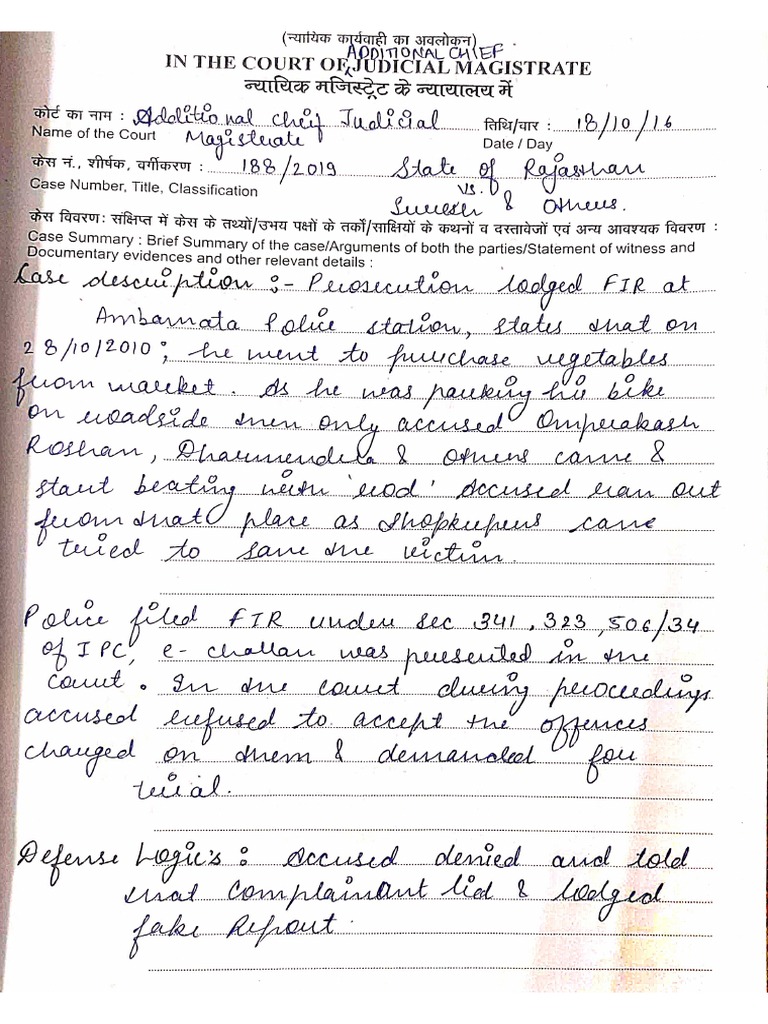 (न्यायिक कार्यवाही का अवलोकन)
ADDITIONAL CHIEF
IN THE COURT OF JUDICIAL MAGISTRATE
न्यायिक मजिस्ट्रेट के न्यायालय में
कोर्ट का नाम : Additional Chief Judicial तिथि/वार : 18/10/16
Name of the Court Magistrate Date / Day
केस नं., शीर्षक, वर्गीकरण : 188/2019 State of Rajasthan
Case Number, Title, Classification vs.
& Others.
केस विवरण: संक्षिप्त में केस के तथ्यों/उभय पक्षों के तर्कों/साक्षियों के कथनों व दस्तावेजों एवं अन्य आवश्यक विवरण :
Case Summary : Brief Summary of the case/Arguments of both the parties/Statement of witness and
Documentary evidences and other relevant details :
Case description :- Prosecution lodged FIR at
Ambamata Police station, states that on
28/10/2010; he went to purchase vegetables
from market. As he was parking his bike
on roadside then only accused Omprakash
Roshan, Dharmendra & Others came &
start beating with 'rod' Accused ran out
from that place as Shopkeepers came
tried to save the victim.
Police filed FIR under sec 341, 323, 506/34
of IPC, e-challan was presented in the
court. In the court during proceedings
accused refused to accept the offences
charged on them & demanded for
trial.
Defense Logic's : Accused denied and told
that Complainant lid & lodged
fake Report.